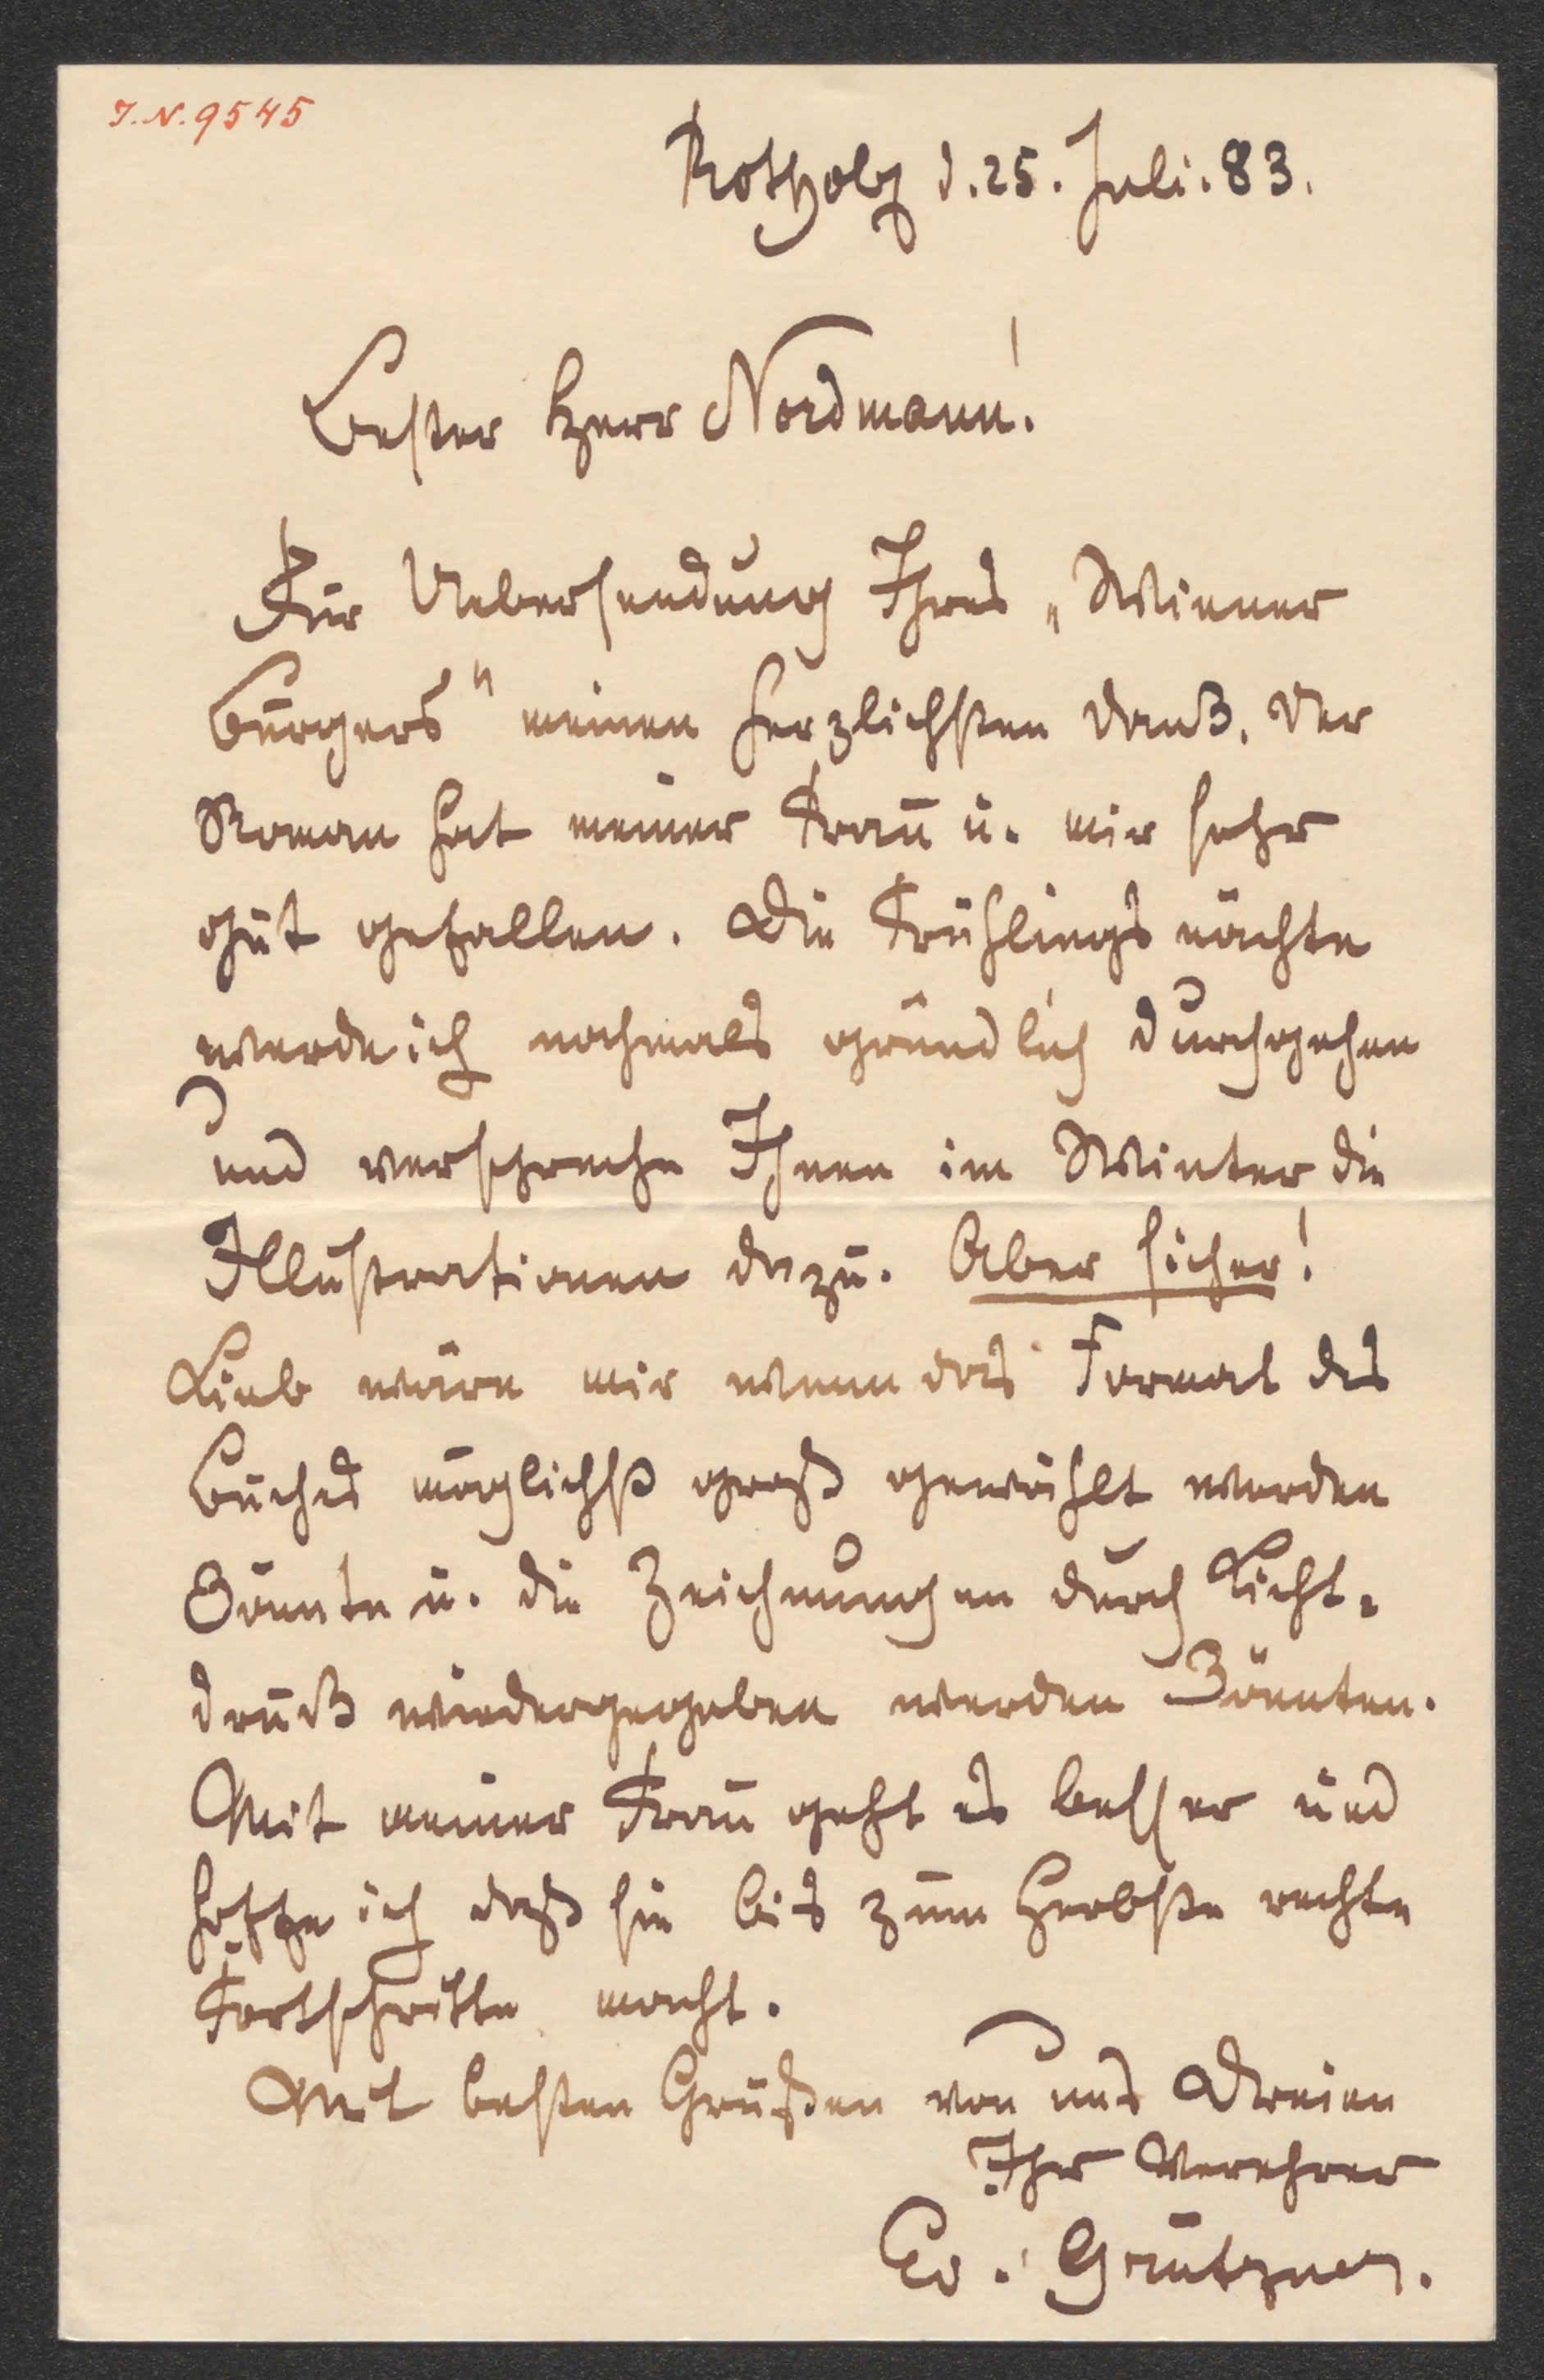 I.N. 9545
Rotholz d. 25. Juli. 83.
Bester Herr Nordmann!
Für Uebersendung Ihres „Wiener
Bürgers" meinen herzlichsten Dank. Der
Roman hat meiner Frau u. mir sehr
gut gefallen. Die Frühlingsnächte
werde ich nochmals gründlich durchgehen
und verspreche Ihnen im Winter die
Illustrationen dazu. Aber sicher!
Lieb wäre mir wenn das Format des
Buches möglichst groß gewählt werden
könnte u. die Zeichnungen durch Licht-
druck wiedergegeben werden könnten.
Mit meiner Frau geht es besser und
hoffe ich daß sie bis zum Herbste rechte
Fortschritte macht.
Mit besten Grüßen von uns Dreien
Ihr Verehrer
Ed. Grützner.